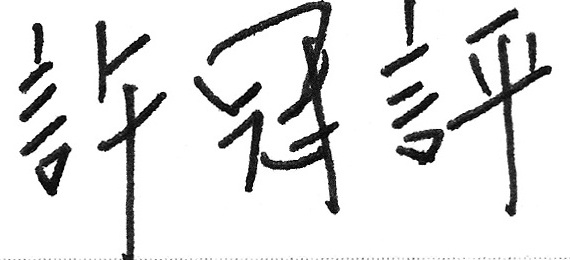 許冠評